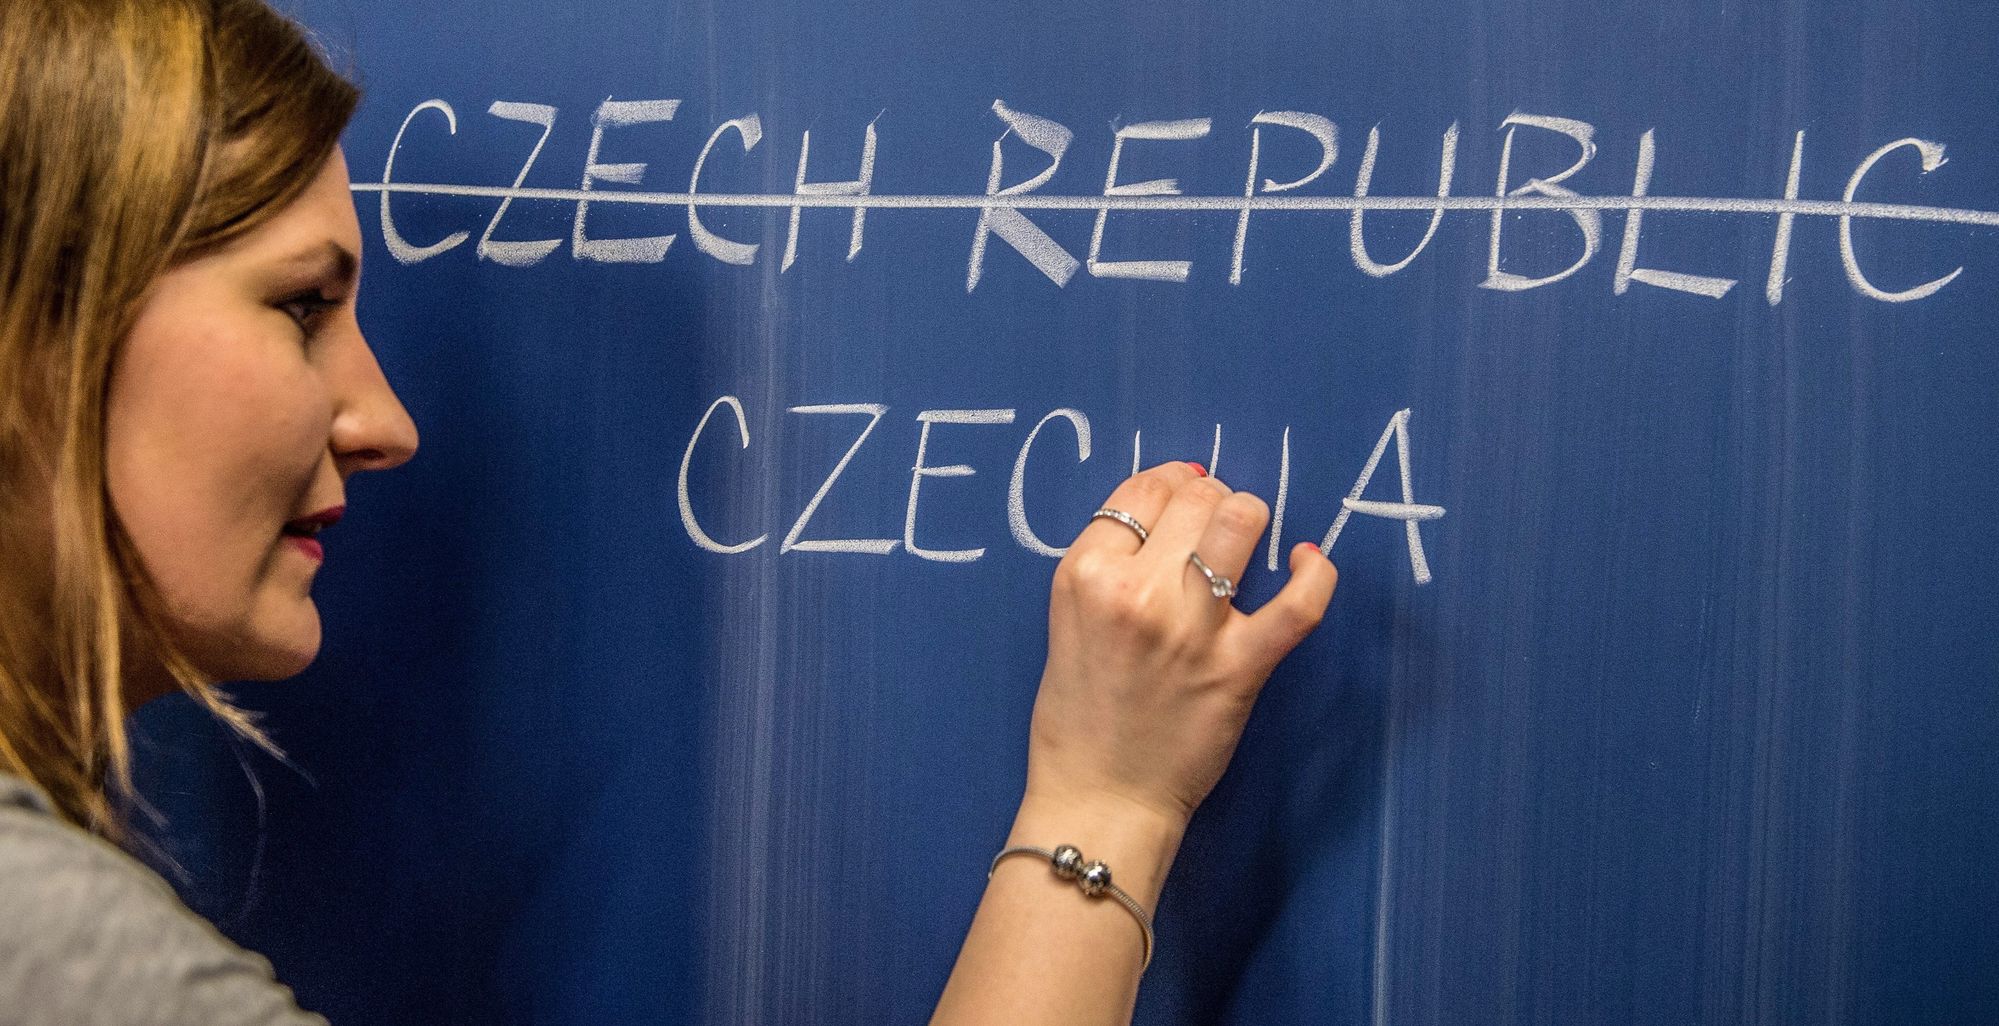 CZECH REPUBLIC
CZECHIA